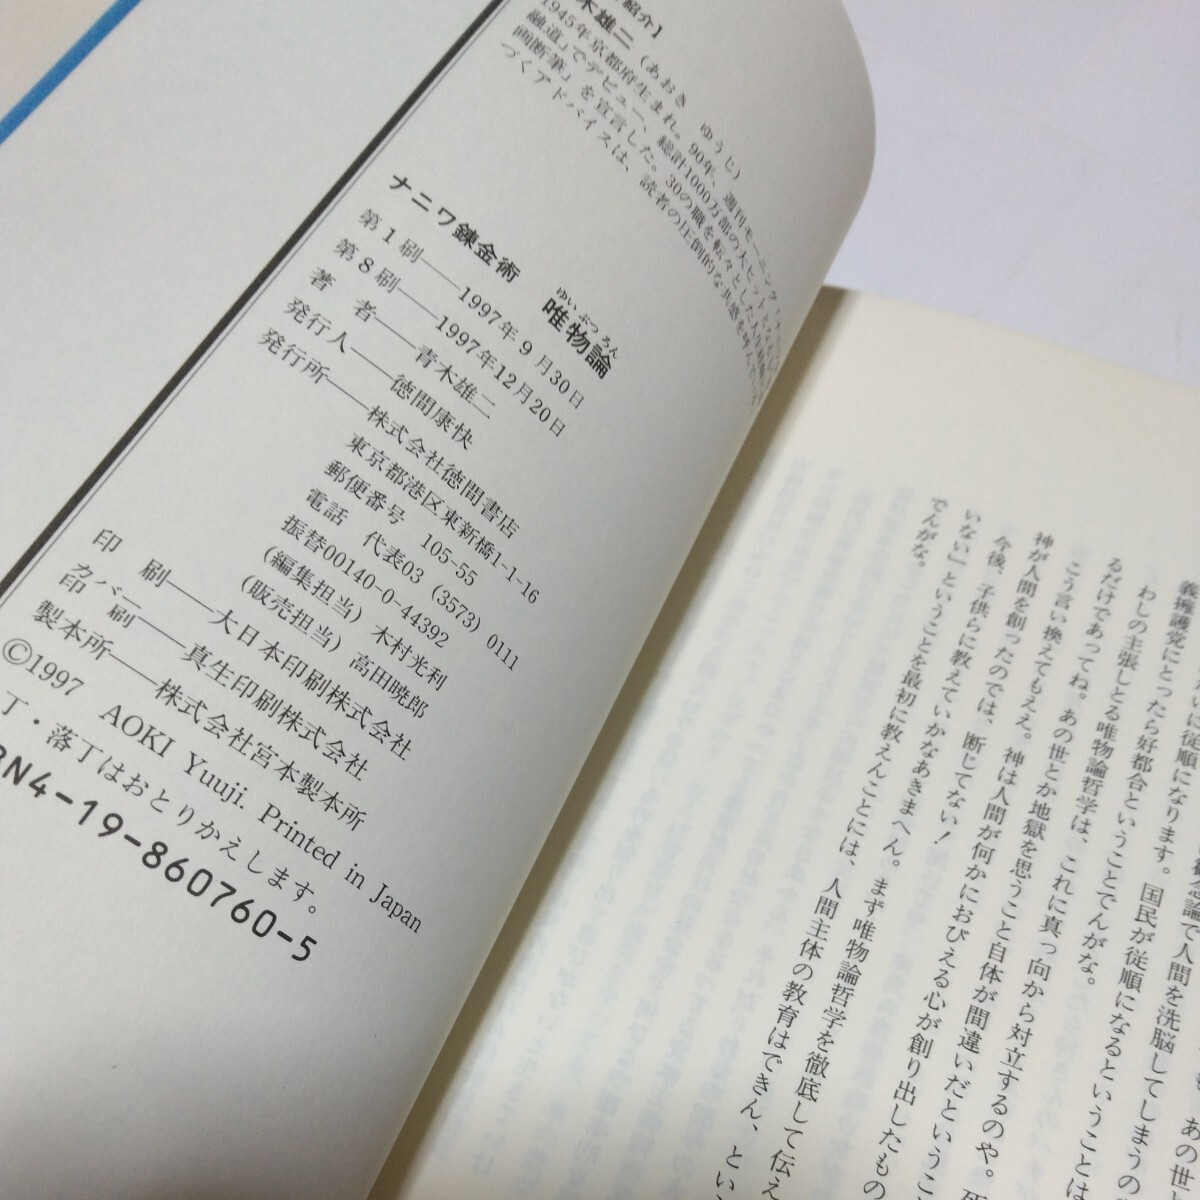 紹介】
木雄二(あおき ゆうじ)
1945年京都府生まれ。90年、週刊モーニング
融道」でデビュー、総計1000万部の大ヒットとな
画断筆」を宣言した。30の職を転々とした人生経験
づくアドバイスは、読者の圧倒的な共感を呼んでい
ナニワ錬金術 唯物論
ゆいぶつろん
第1刷――1997年9月30日
第8刷――1997年12月20日
著者――青木雄二
発行人――徳間康快
発行所――株式会社徳間書店
東京都港区東新橋1-1-16
郵便番号 105-55
電話 代表03(3573)0111
振替00140-0-44392
(編集担当)木村光利
(販売担当)高田暁郎
印刷――大日本印刷株式会社
カバー印刷――真生印刷株式会社
製本所――株式会社宮本製本所
©1997 AOKI Yuuji. Printed in Japan
丁・落丁はおとりかえします。
BN4-19-860760-5
念論で人間を洗脳してしまうの
義擁護党にとったら好都合ということでんがな。
わしの主張しとる唯物論哲学は、これに真っ向から対立するのや。
るだけであってね。あの世とか地獄を思うこと自体が間違いだというこ
こう言い換えてもええ。神は人間が何かにおびえる心が創り出したもの
神が人間を創ったのでは、断じてない!
今後、子供らに教えていかなあきまへん。まず唯物論哲学を徹底して伝え
いない」ということを最初に教えんことには、人間主体の教育はできん、とい
でんがな。